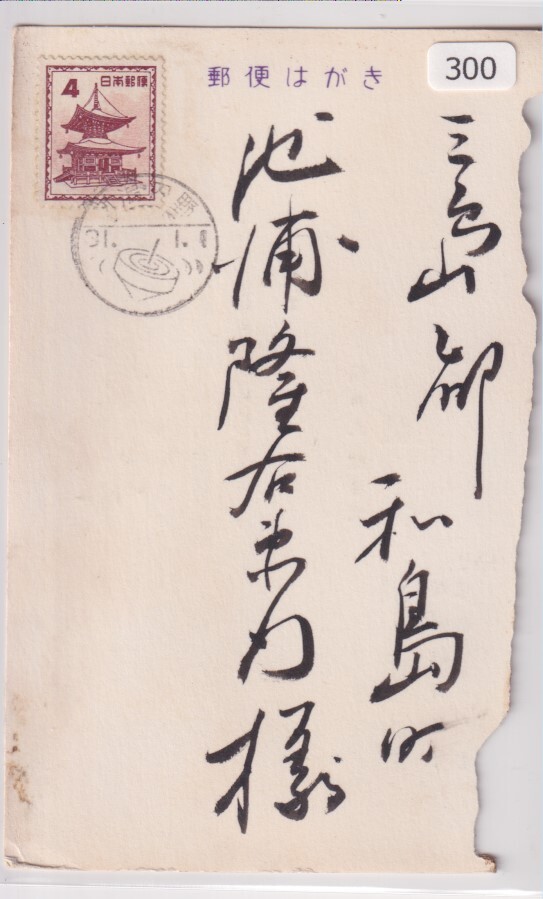 300
郵便はがき
4
日本郵便
31. 1. 1
三島郡
和島町
池浦隆右衛門様